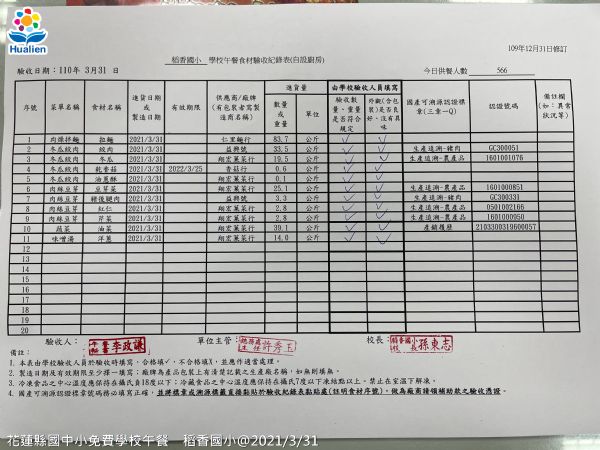 Hualien
109年12月31日修訂
稻香國小 學校午餐食材驗收紀錄表(自設廚房)
驗收日期：110年 3月31 日 今日供餐人數 566
序號 菜單名稱 食材名稱 進貨日期或製造日期 有效期限 供應商/廠牌(有包裝者寫製造商名稱) 進貨量 數量或重量 單位 由學校驗收人員填寫 驗收數量、重量是否符合規定 外觀(含包裝)是否良好、沒有異味 國產可溯源認證標章(三章一Q) 認證號碼 備註欄(如：異常狀況等)
1 肉燥拌麵 拉麵 2021/3/31 仁里麵行 83.7 公斤 ✓ ✓
2 冬瓜絞肉 絞肉 2021/3/31 益興號 33.5 公斤 ✓ ✓ 生產追溯-豬肉 GC300051
3 冬瓜絞肉 冬瓜 2021/3/31 翔宏蔬菜行 19.5 公斤 ✓ ✓ 生產追溯-農產品 1601001076
4 冬瓜絞肉 乾香菇 2022/3/25 香菇行 0.6 公斤 ✓ ✓
5 冬瓜絞肉 油蔥酥 2021/3/31 翔宏蔬菜行 0.1 公斤 ✓ ✓
6 肉絲豆芽 豆芽菜 2021/3/31 翔宏蔬菜行 25.1 公斤 ✓ ✓ 生產追溯-農產品 1601000851
7 肉絲豆芽 豬後腿肉 2021/3/31 益興號 3.3 公斤 ✓ ✓ 生產追溯-豬肉 GC300331
8 肉絲豆芽 紅仁 2021/3/31 翔宏蔬菜行 2.8 公斤 ✓ ✓ 生產追溯-農產品 0501002166
9 肉絲豆芽 芹菜 2021/3/31 翔宏蔬菜行 2.8 公斤 ✓ ✓ 生產追溯-農產品 1601000950
10 蔬菜 油菜 2021/3/31 翔宏蔬菜行 39.1 公斤 ✓ ✓ 產銷履歷 2103300319600057
11 味噌湯 洋蔥 2021/3/31 翔宏蔬菜行 14.0 公斤 ✓ ✓
12
13
14
15
16
17
18
19
20
驗收人： 李政謙 單位主管： 許秀玉 校長： 稻香國小校長 孫東志
備註：
1. 本表由學校驗收人員於驗收時填寫，合格填✓，不合格填X，並應作適當處理。
2. 製造日期及有效期限至少擇一填寫；廠牌為產品包裝上有清楚記載之生產廠名稱，如無則填無。
3. 冷凍食品之中心溫度應保持在攝氏負18度以下；冷藏食品之中心溫度應保持在攝氏7度以下凍結點以上。禁止在室溫下解凍。
4. 國產可溯源認證標章號碼務必填寫正確，並將標章或溯源標籤直接黏貼於驗收紀錄表黏貼處(註明食材序號)，做為廠商請領補助款之驗收憑證。
花蓮縣國中小免費學校午餐 稻香國小@2021/3/31